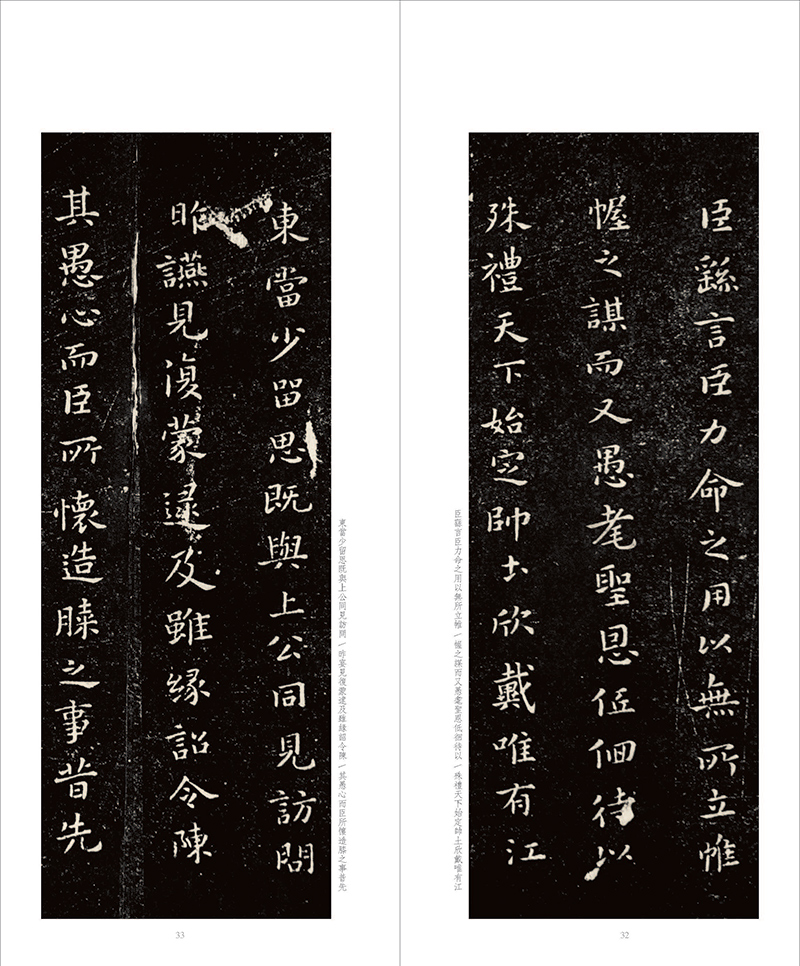 臣繇言臣力命之用以無所立帷
幄之謀而又愚耄聖恩低佪待以
殊禮天下始定帥土欣戴唯有江
臣繇言臣力命之用以無所立帷 | 幄之謀而又愚耄聖恩低徊待以 | 殊禮天下始定師土欣戴唯有江
32
東當少留思既與上公同見訪問
昨讌見復蒙逮及雖緣詔令陳
其愚心而臣所懷造膝之事昔先
東當少留思既與上公同見訪問 | 昨宴見復蒙逮及雖緣詔令陳 | 其愚心而臣所懷造膝之事昔先
33